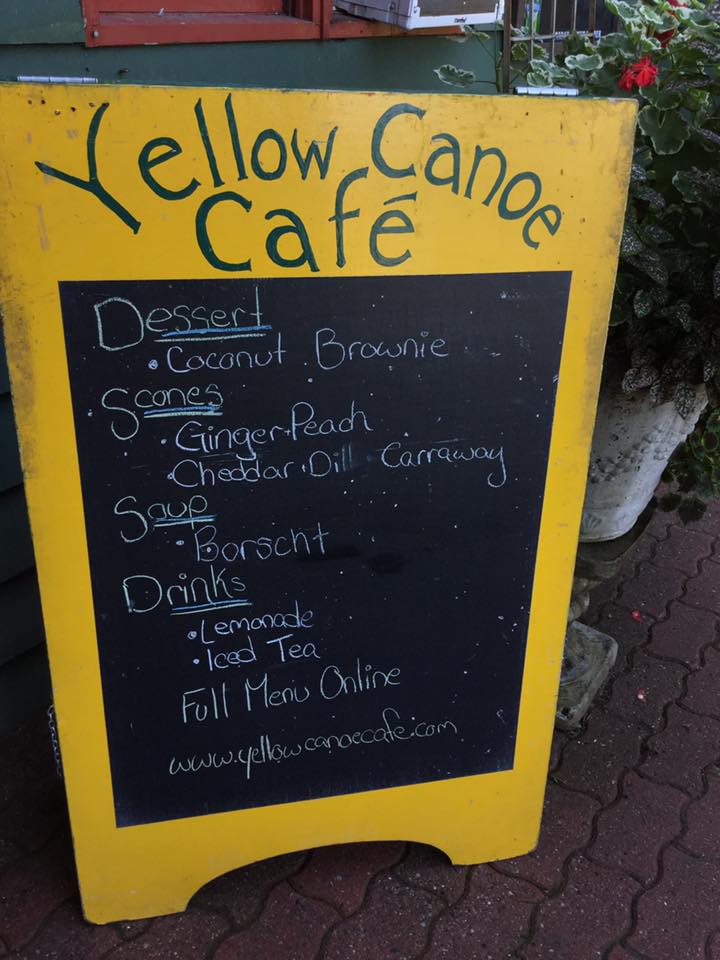 Yellow Canoe
Café
Dessert
• Coconut Brownie
Scones
• Ginger Peach
• Cheddar Dill Carraway
Soup
• Borscht
Drinks
• Lemonade
• Iced Tea
Full Menu Online
www.yellowcanoecafe.com